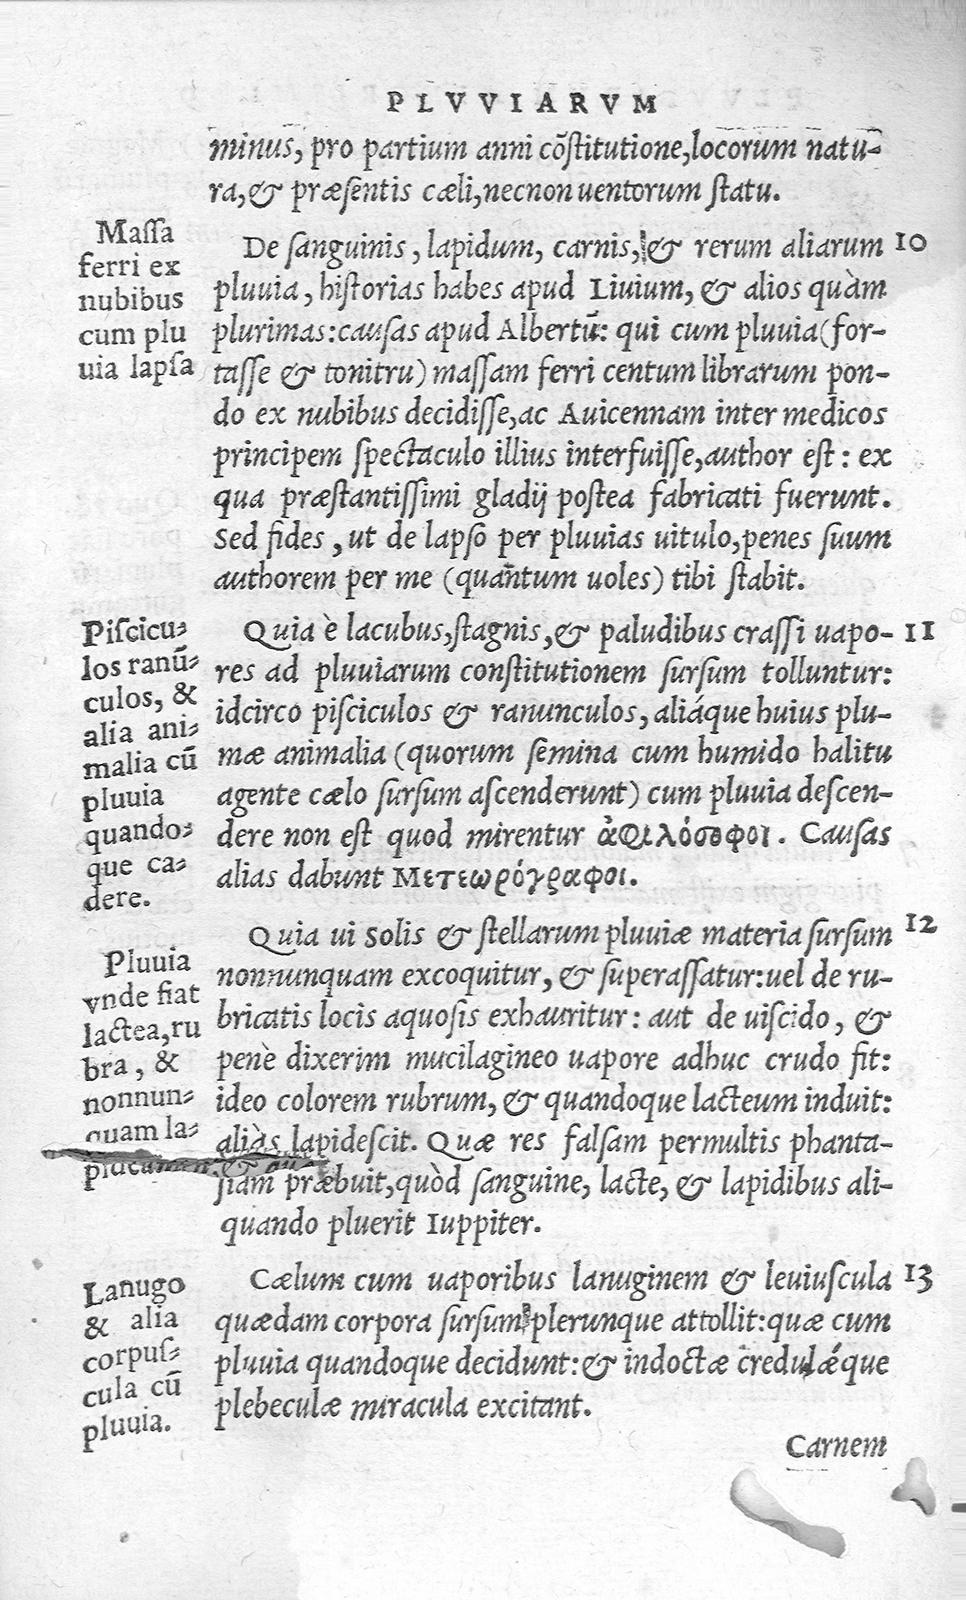 PLVVIARVM
minus, pro partium anni cõſtitutione, locorum natu-
ra, & præſentis cæli, necnon uentorum ſtatu.
Maſſa
ferri ex
nubibus
cum plu
uia lapſa
De ſanguinis, lapidum, carnis, & rerum aliarum 10
pluuia, hiſtorias habes apud Liuium, & alios quàm
plurimas: cauſas apud Albertũ: qui cum pluuia (for-
taſſe & tonitru) maſſam ferri centum librarum pon-
do ex nubibus decidiſſe, ac Auicennam inter medicos
principem ſpectaculo illius interfuiſſe, author eſt: ex
qua præſtantiſſimi gladij poſtea fabricati fuerunt.
Sed fides, ut de lapſo per pluuias uitulo, penes ſuum
authorem per me (quantum uoles) tibi ſtabit.
Piſcicu-
los ranũ-
culos, &
alia ani-
malia cũ
pluuia
quando-
que ca-
dere.
Quia è lacubus, ſtagnis, & paludibus craſſi uapo- 11
res ad pluuiarum conſtitutionem ſurſum tolluntur:
idcirco piſciculos & ranunculos, aliáque huius plu-
mæ animalia (quorum ſemina cum humido halitu
agente cælo ſurſum aſcenderunt) cum pluuia deſcen-
dere non eſt quod mirentur ἀφιλόσοφοι. Cauſas
alias dabunt Μετεωρόγραφοι.
Pluuia
vnde fiat
lactea, ru
bra, &
nonnun-
quam la-
pidea
Quia ui Solis & ſtellarum pluuiæ materia ſurſum 12
nonnunquam excoquitur, & ſuperaſſatur: uel de ru-
bricatis locis aquoſis exhauritur: aut de uiſcido, &
penè dixerim mucilagineo uapore adhuc crudo fit:
ideo colorem rubrum, & quandoque lacteum induit:
aliàs lapideſcit. Quæ res falſam permultis phanta-
ſiam præbuit, quòd ſanguine, lacte, & lapidibus ali-
quando pluerit Iuppiter.
Lanugo
& alia
corpuſ-
cula cũ
pluuia.
Cælum cum uaporibus lanuginem & leuiuſcula 13
quædam corpora ſurſum plerunque attollit: quæ cum
pluuia quandoque decidunt: & indoctæ credulǽque
plebeculæ miracula excitant.
Carnem